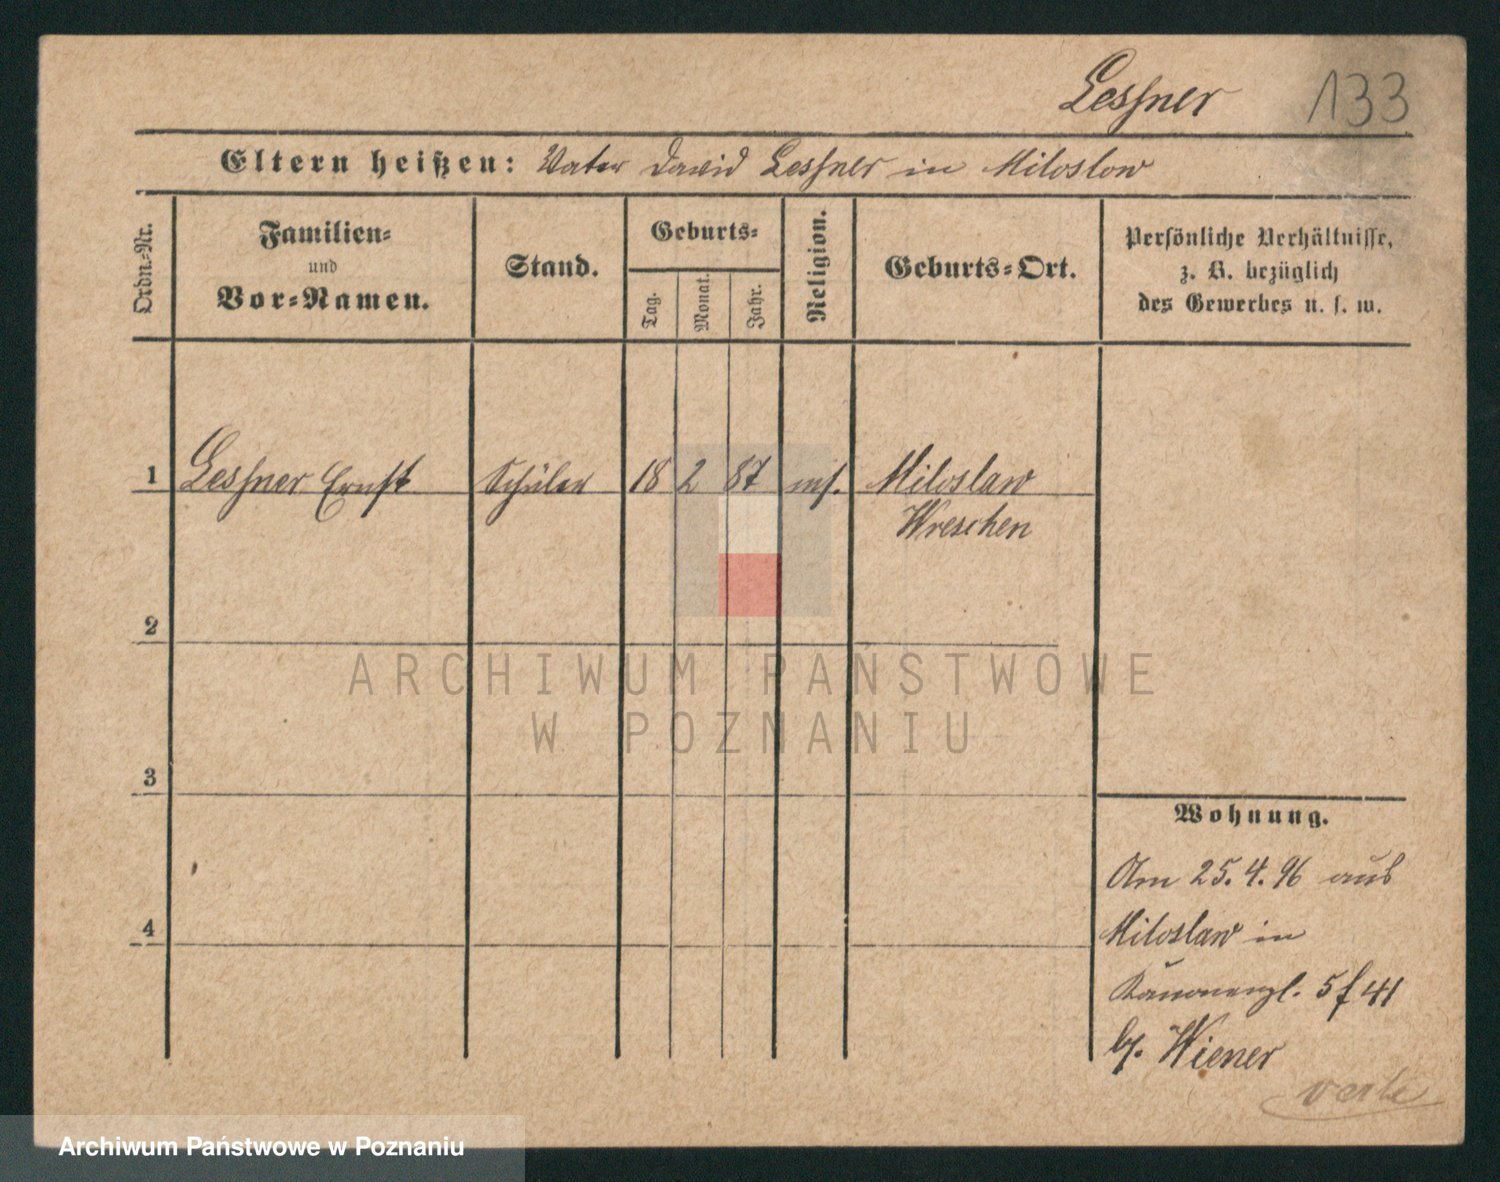 Lessner 133
Eltern heißen: Vater David Lessner in Miloslow
Ordn.-Nr.
Familien-
und
Vor-Namen.
Stand.
Geburts-
Tag.
Monat.
Jahr.
Religion.
Geburts-Ort.
Persönliche Verhältnisse,
z. B. bezüglich
des Gewerbes u. s. w.
1 Lessner Ernst Schüler 18 2 87 ms. Miloslaw
Wreschen
2
3
4
Wohnung.
Am 25.4.96 aus
Miloslaw in
Kanonenpl. 5 f 41
by. Wiener
verte
ARCHIWUM PAŃSTWOWE
W POZNANIU
Archiwum Państwowe w Poznaniu